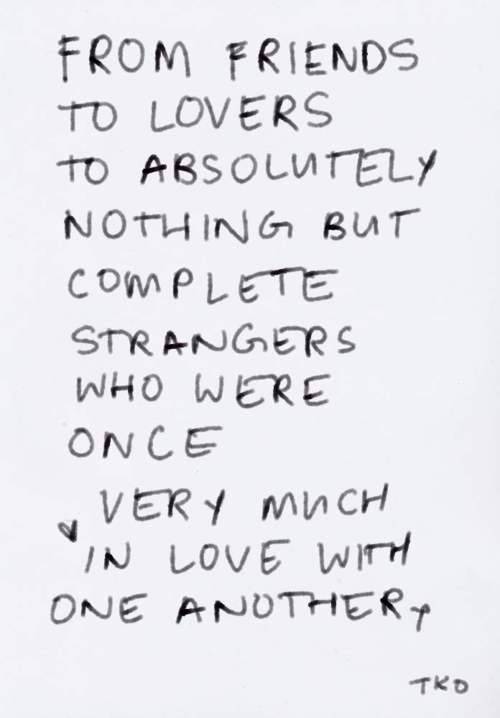 FROM FRIENDS
TO LOVERS
TO ABSOLUTELY
NOTHING BUT
COMPLETE
STRANGERS
WHO WERE
ONCE
VERY MUCH
IN LOVE WITH
ONE ANOTHER
TKO